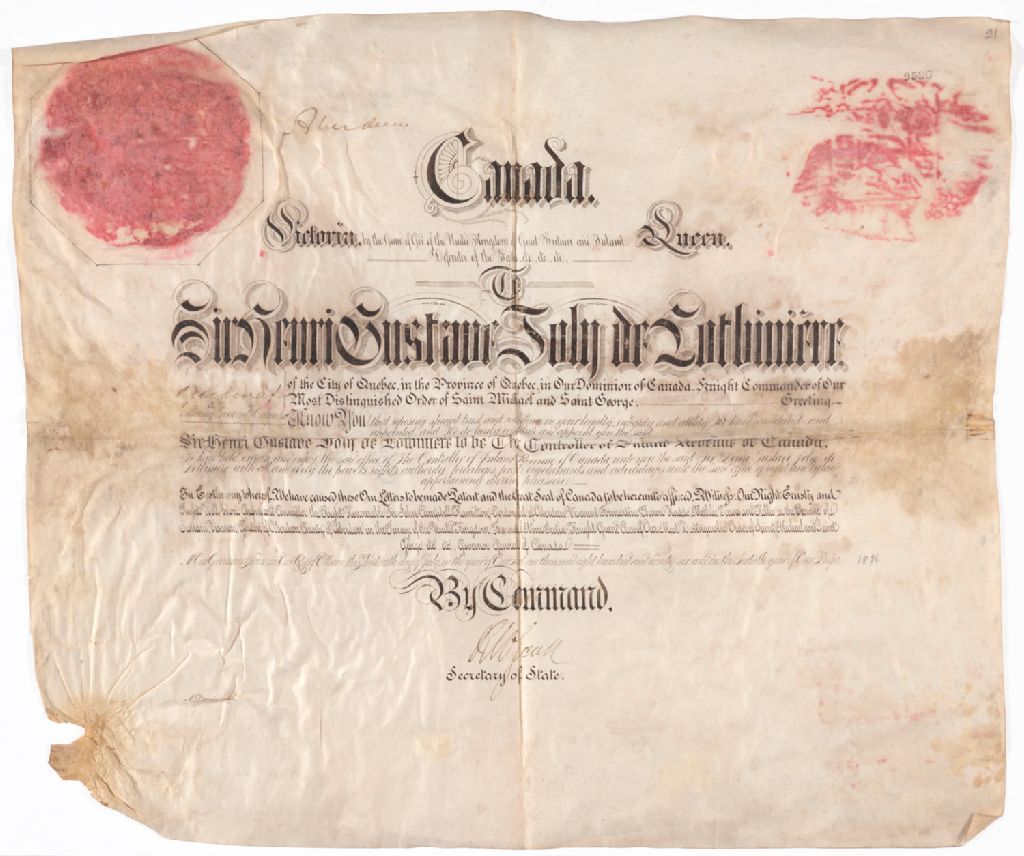 21
9590
Aberdeen
Canada.
Victoria, by the Grace of God, of the United Kingdom of Great Britain and Ireland Queen,
Defender of the Faith, &c. &c. &c.
To
Sir Henri Gustave Joly de Lotbinière.
of the City of Quebec, in the Province of Quebec, in Our Dominion of Canada, Knight Commander of Our
Most Distinguished Order of Saint Michael and Saint George. Greeting.
Know You that reposing special trust and confidence in your loyalty, integrity and ability We have constituted and
appointed and We do constitute and appoint you the said
Sir Henri Gustave Joly de Lotbinière to be The Controller of Inland Revenue of Canada.
To have hold exercise and enjoy the said office of The Controller of Inland Revenue of Canada unto you the said Sir Henri Gustave Joly de
Lotbinière with all and every the powers rights authority privileges profits emoluments and advantages unto the said office of right and by law
appertaining during pleasure
In Testimony whereof We have caused these Our Letters to be made Patent and the Great Seal of Canada to be hereunto affixed. Witness: Our Right Trusty and
George &c. &c. Governor General of Canada
At Our Government House in Our City of Ottawa, this Thirteenth day of July, in the year of Our Lord one thousand eight hundred and ninety-six and in the Sixtieth year of Our Reign. 1896
By Command,
Secretary of State.